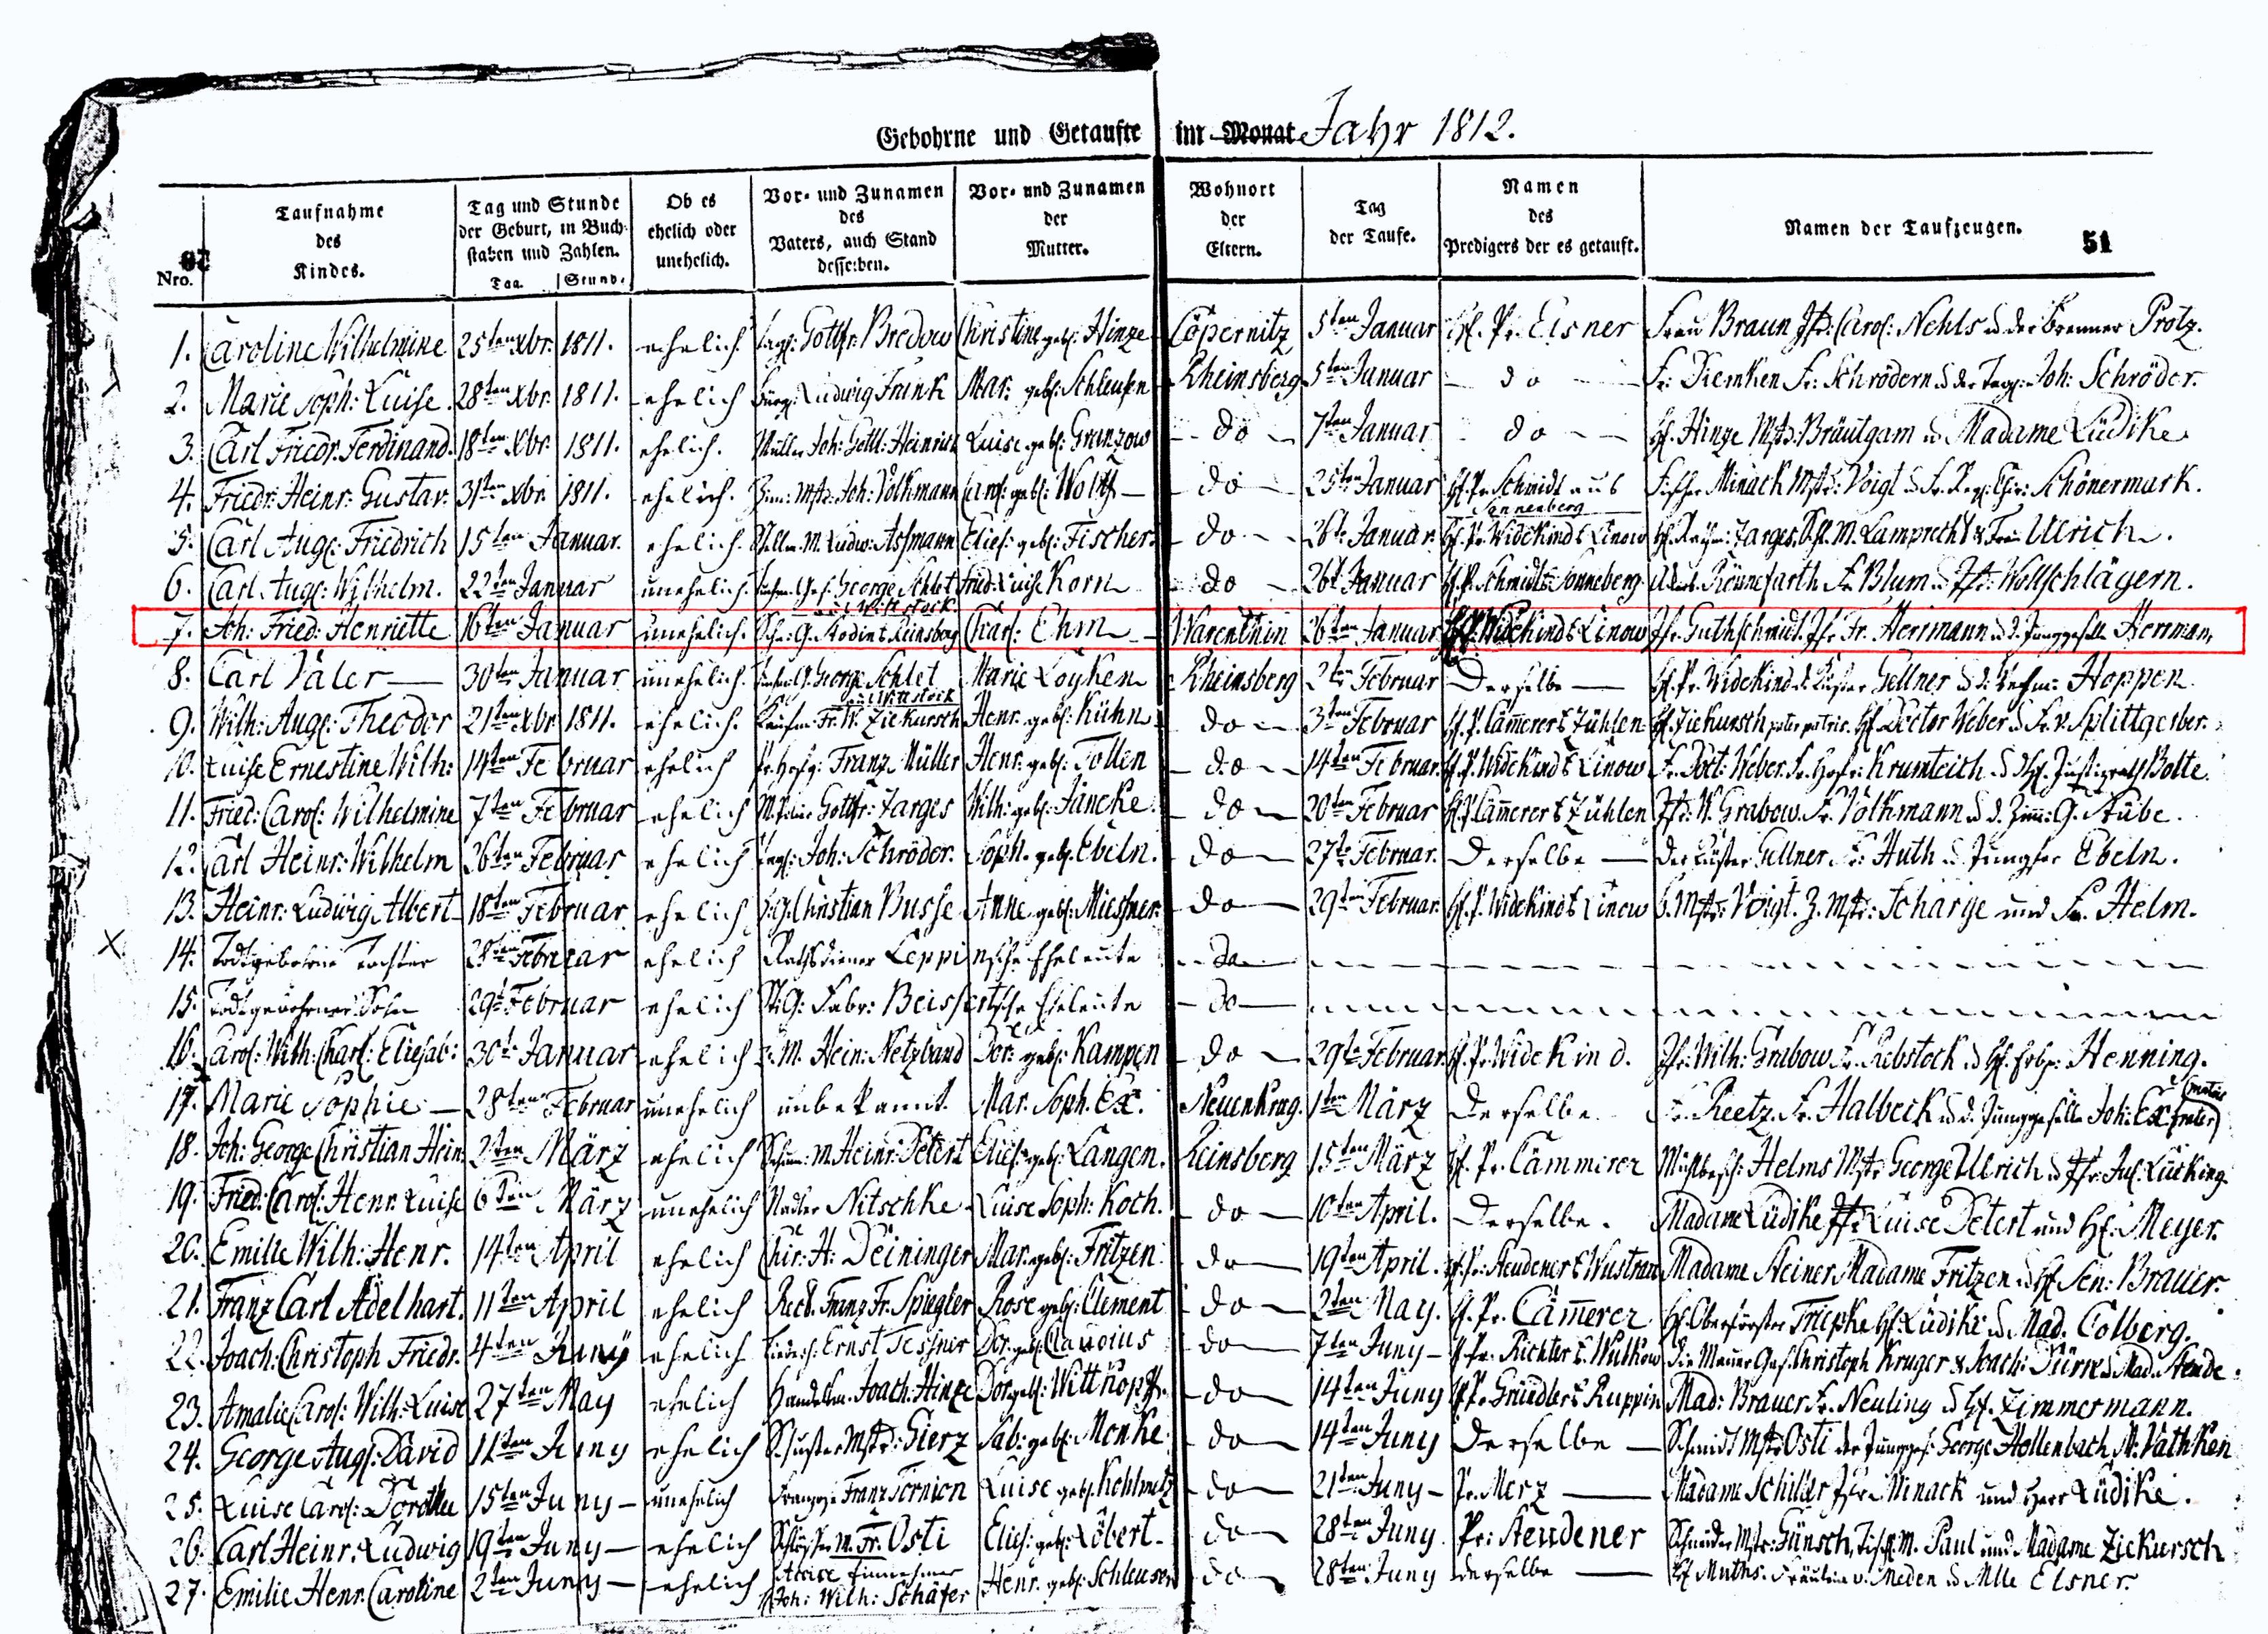 Gebohrne und Getaufte im Monat Jahr 1812.
Nro.
Taufnahme des Kindes.
Tag und Stunde der Geburt, in Buchstaben und Zahlen.
Tag. Stund.
Ob es ehelich oder unehelich.
Vor- und Zunamen des Vaters, auch Stand desselben.
Vor- und Zunamen der Mutter.
Wohnort der Eltern.
Tag der Taufe.
Namen des Predigers der es getauft.
Namen der Taufzeugen.
51
1. Caroline Wilhelmine 25ten Xbr. 1811. ehelich. Gottfr: Bredow Christine geb: Hinze Cöpernitz 5ten Januar H. Pr. Elsner Frau Braun Jfr: Carol: Nehls u der Brenner Protz.
2. Marie Soph: Luise. 28ten Xbr. 1811. ehelich Ludwig Frink Mar: geb: Schleusen Rheinsberg 5ten Januar do Fr: Diemken Fr: Schrödern u der Tagl: Joh: Schröder.
3. Carl Friedr. Ferdinand. 18ten Xbr. 1811. ehelich. Müller Joh: Gottl: Heinrich Luise geb: Granzow do 7ten Januar do H. Hinze Mstr: Bräutgam u Madame Lüdike
4. Friedr: Heinr: Gustav. 31ten Xbr. 1811. ehelich. Zim: Mstr: Joh: Volkmann Carol: geb: Wolff do 25ten Januar H. Pr. Schmidt aus Sonnenberg Fischer Minack Mstr: Voigt u Fr. Schönermark.
5. Carl Aug: Friedrich 15ten Januar. ehelich. M. Ludw: Assmann Elies: geb: Fischer do 26t Januar. H. Pr. Widekind Linow M. Lamprecht Ulrich.
6. Carl Aug: Wilhelm. 22ten Januar unehelich. George Schlet aus Wittstock Fried: Luise Korn do 26t Januar H. P. Schmidt Sonneberg Rönnefarth Fr Blum u Jfr: Wollschlägern.
7. Joh: Fried: Henriette 16ten Januar unehelich. Rheinsberg Charl: Ehm Warenthin 26ten Januar Widekind Linow Jfr Guthschmidt. Jfr Fr. Herrmann u d. Junggeselle Herrman,
8. Carl Väler 30ten Januar unehelich. George Schlet aus Wittstock Marie Löyken Rheinsberg 2ten Februar Derselbe H. Pr. Widekind d. Küster Gellner u d. Hoppen
9. Wilh: Aug: Theodor 21ten Xbr 1811. ehelich. Kaufm: Fr. W. Ziekursch Henr. geb: Kühn do 3ten Februar H. P. Cämerer Zühlen H. Ziekursch H. Doctor Weber u Fr. v. Splittgerber.
10. Luise Ernestine Wilh: 14ten Februar ehelich Franz Müller Henr: geb: Tollen do 14ten Februar. H. P. Widekind Linow Fr. Doct: Weber. Krumteich u H. Justizrath Bolte.
11. Fried: Carol: Wilhelmine 7ten Februar ehelich Gottfr: Jarges Wilh: geb: Jäncke do 20ten Februar H. P. Cämerer Zühlen Jfr: W. Grabow. Fr. Volkmann u d. Zim: G. Stübe.
12. Carl Heinr: Wilhelm 26ten Februar ehelich Tagl: Joh: Schröder. Soph. geb. Ebeln. do 27te Februar. Derselbe Der Küster Gellner Fr: Huth u Jungfer Ebeln.
13. Heinr: Ludwig Albert 18ten Februar ehelich Christian Busse Anne geb: Miessner. do 29ten Februar. H. P. Widekind Linow Mstr: Voigt. Z. Mstr: Scharge und Fr. Helm.
X. 14. Todtgeborne Tochter 28ten Februar ehelich Rathsdiener Leppinsche Eheleute do
15. Todtgebohrner Sohn 29t Februar ehelich Fabr: Beissertsche Eheleute do
16. Carol: Wilh: Charl: Eliesab: 30te Januar ehelich M. Hein: Netzband Dor: geb: Kampen do 29te Februar. H. Pr. Widekind. Jfr: Wilh: Grabow Fr. Rebstock u H. Henning.
17. Marie Sophie 28ten Februar unehelich unbekannt. Mar. Soph. Ex. Neuenkrug. 1ten März Derselbe Fr. Reetz. Fr. Halbeck u d. Junggeselle Joh: Ex. frater
18. Joh: George Christian Hein: 2ten März ehelich M. Heinr: Detert Elies: geb: Langen. Reinsberg 15ten März H. Pr. Cämmerer Helms Mstr George Ulrich u Jfr. Jul. Lücking.
19. Fried: Carol: Henr. Luise 6ten März unehelich Nadler Nitschke Luise Soph: Koch. do 10ten April. Derselbe. Madame Lüdike Jfr: Luise Detert und H. Meyer.
20. Emilie Wilh: Henr. 14ten April ehelich Chir: H: Deininger Mar. geb: Fritzen do 19ten April. H. Pr: Steudener Wustrau Madame Steiner Madame Fritzen u H. Sen: Brauer.
21. Franz Carl Adelhart. 11ten April ehelich Franz Fr. Spiegler Rose geb: Clement do 2ten May. H. Pr. Cämerer H. Oberförster Triepke H. Lüdike u Mad. Colberg.
22. Joach: Christoph Friedr. 4ten Juny ehelich Ernst Tessner Dor. geb: Claudius do 7ten Juny H. Pr. Richter Wulkow Die Maurer Ges. Christoph Kruger & Joach: Dürre u Mad. Stende.
23. Amalie Carol: Wilh: Luise 27ten May ehelich Handelsm. Joach: Hinze Dor. geb: Witthopf do 14ten Juny Pr. Gründler Ruppin Mad: Brauer Fr. Neuling u H. Zimmermann.
24. George Aug: David 11ten Juny ehelich Schuster Mstr: Gierz Sab: geb: Monke do 14ten Juny Derselbe Schmidt Mstr Osti der Junggs: George Hollenbach M: Vathken
25. Luise Carol: Dorothe 15ten Juny unehelich Franzose Franz Tornion Luise geb: do 21ten Juny Pr. Merz Madame Schilder Jfr: Minack und Herr Lüdike.
26. Carl Heinr: Ludwig 19ten Juny ehelich Schlosser M. Fr: Osti Elies: geb: Löbert do 28ten Juny Pr: Steudener Schneider Mstr: Günsch, Tisch. M. Paul und Madame Ziekursch
27. Emilie Henr. Caroline 2ten Juny ehelich Accise Einnehmer Joh: Wilh: Schäfer Henr. geb: Schleusen do 28ten Juny Derselbe H. Muths. Fräulein v. Meden u Mlle Elsner.